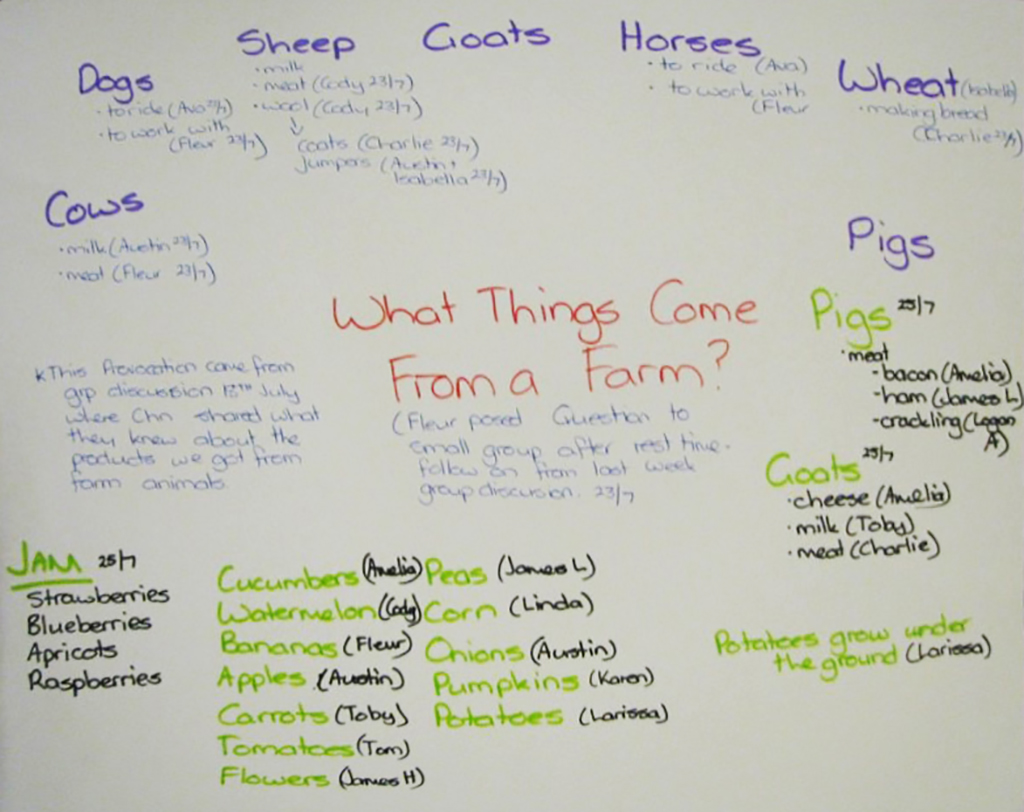 Sheep
Goats
Horses
Dogs
Wheat (Isabella)
· milk
· meat (Cody 23/7)
· wool (Cody 23/7)
coats (Charlie 23/7)
Jumpers (Austin +
Isabella 23/7)
· to ride (Ava)
· to work with
(Fleur
· to ride (Ava 23/7)
· to work with
(Fleur 23/7)
· making bread
(Charlie 23/7)
Cows
· milk (Austin 23/7)
· meat (Fleur 23/7)
Pigs
What Things Come
From a Farm?
(Fleur posed Question to
small group after rest time.
follow on from last week
group discusion. 23/7
* This Provocation came from
grp discussion 18TH July
where Chn shared what
they knew about the
products we got from
farm animals
Pigs 25/7
· meat
- bacon (Amelia)
- ham (James L)
- crackling (Logan
A)
Goats 25/7
· cheese (Amelia)
· milk (Toby)
· meat (Charlie)
JAM 25/7
Strawberries
Blueberries
Apricots
Raspberries
Cucumbers (Amelia)
Watermelon (Cody)
Bananas (Fleur)
Apples (Austin)
Carrots (Toby)
Tomatoes (Tom)
Flowers (James H)
Peas (James L)
Corn (Linda)
Onions (Austin)
Pumpkins (Karen)
Potatoes (Larissa)
Potatoes grow under
the ground (Larissa)